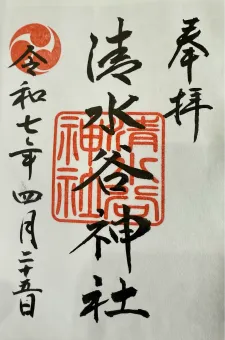 奉拝
清水谷神社
令和七年四月二十五日
清水谷
神社